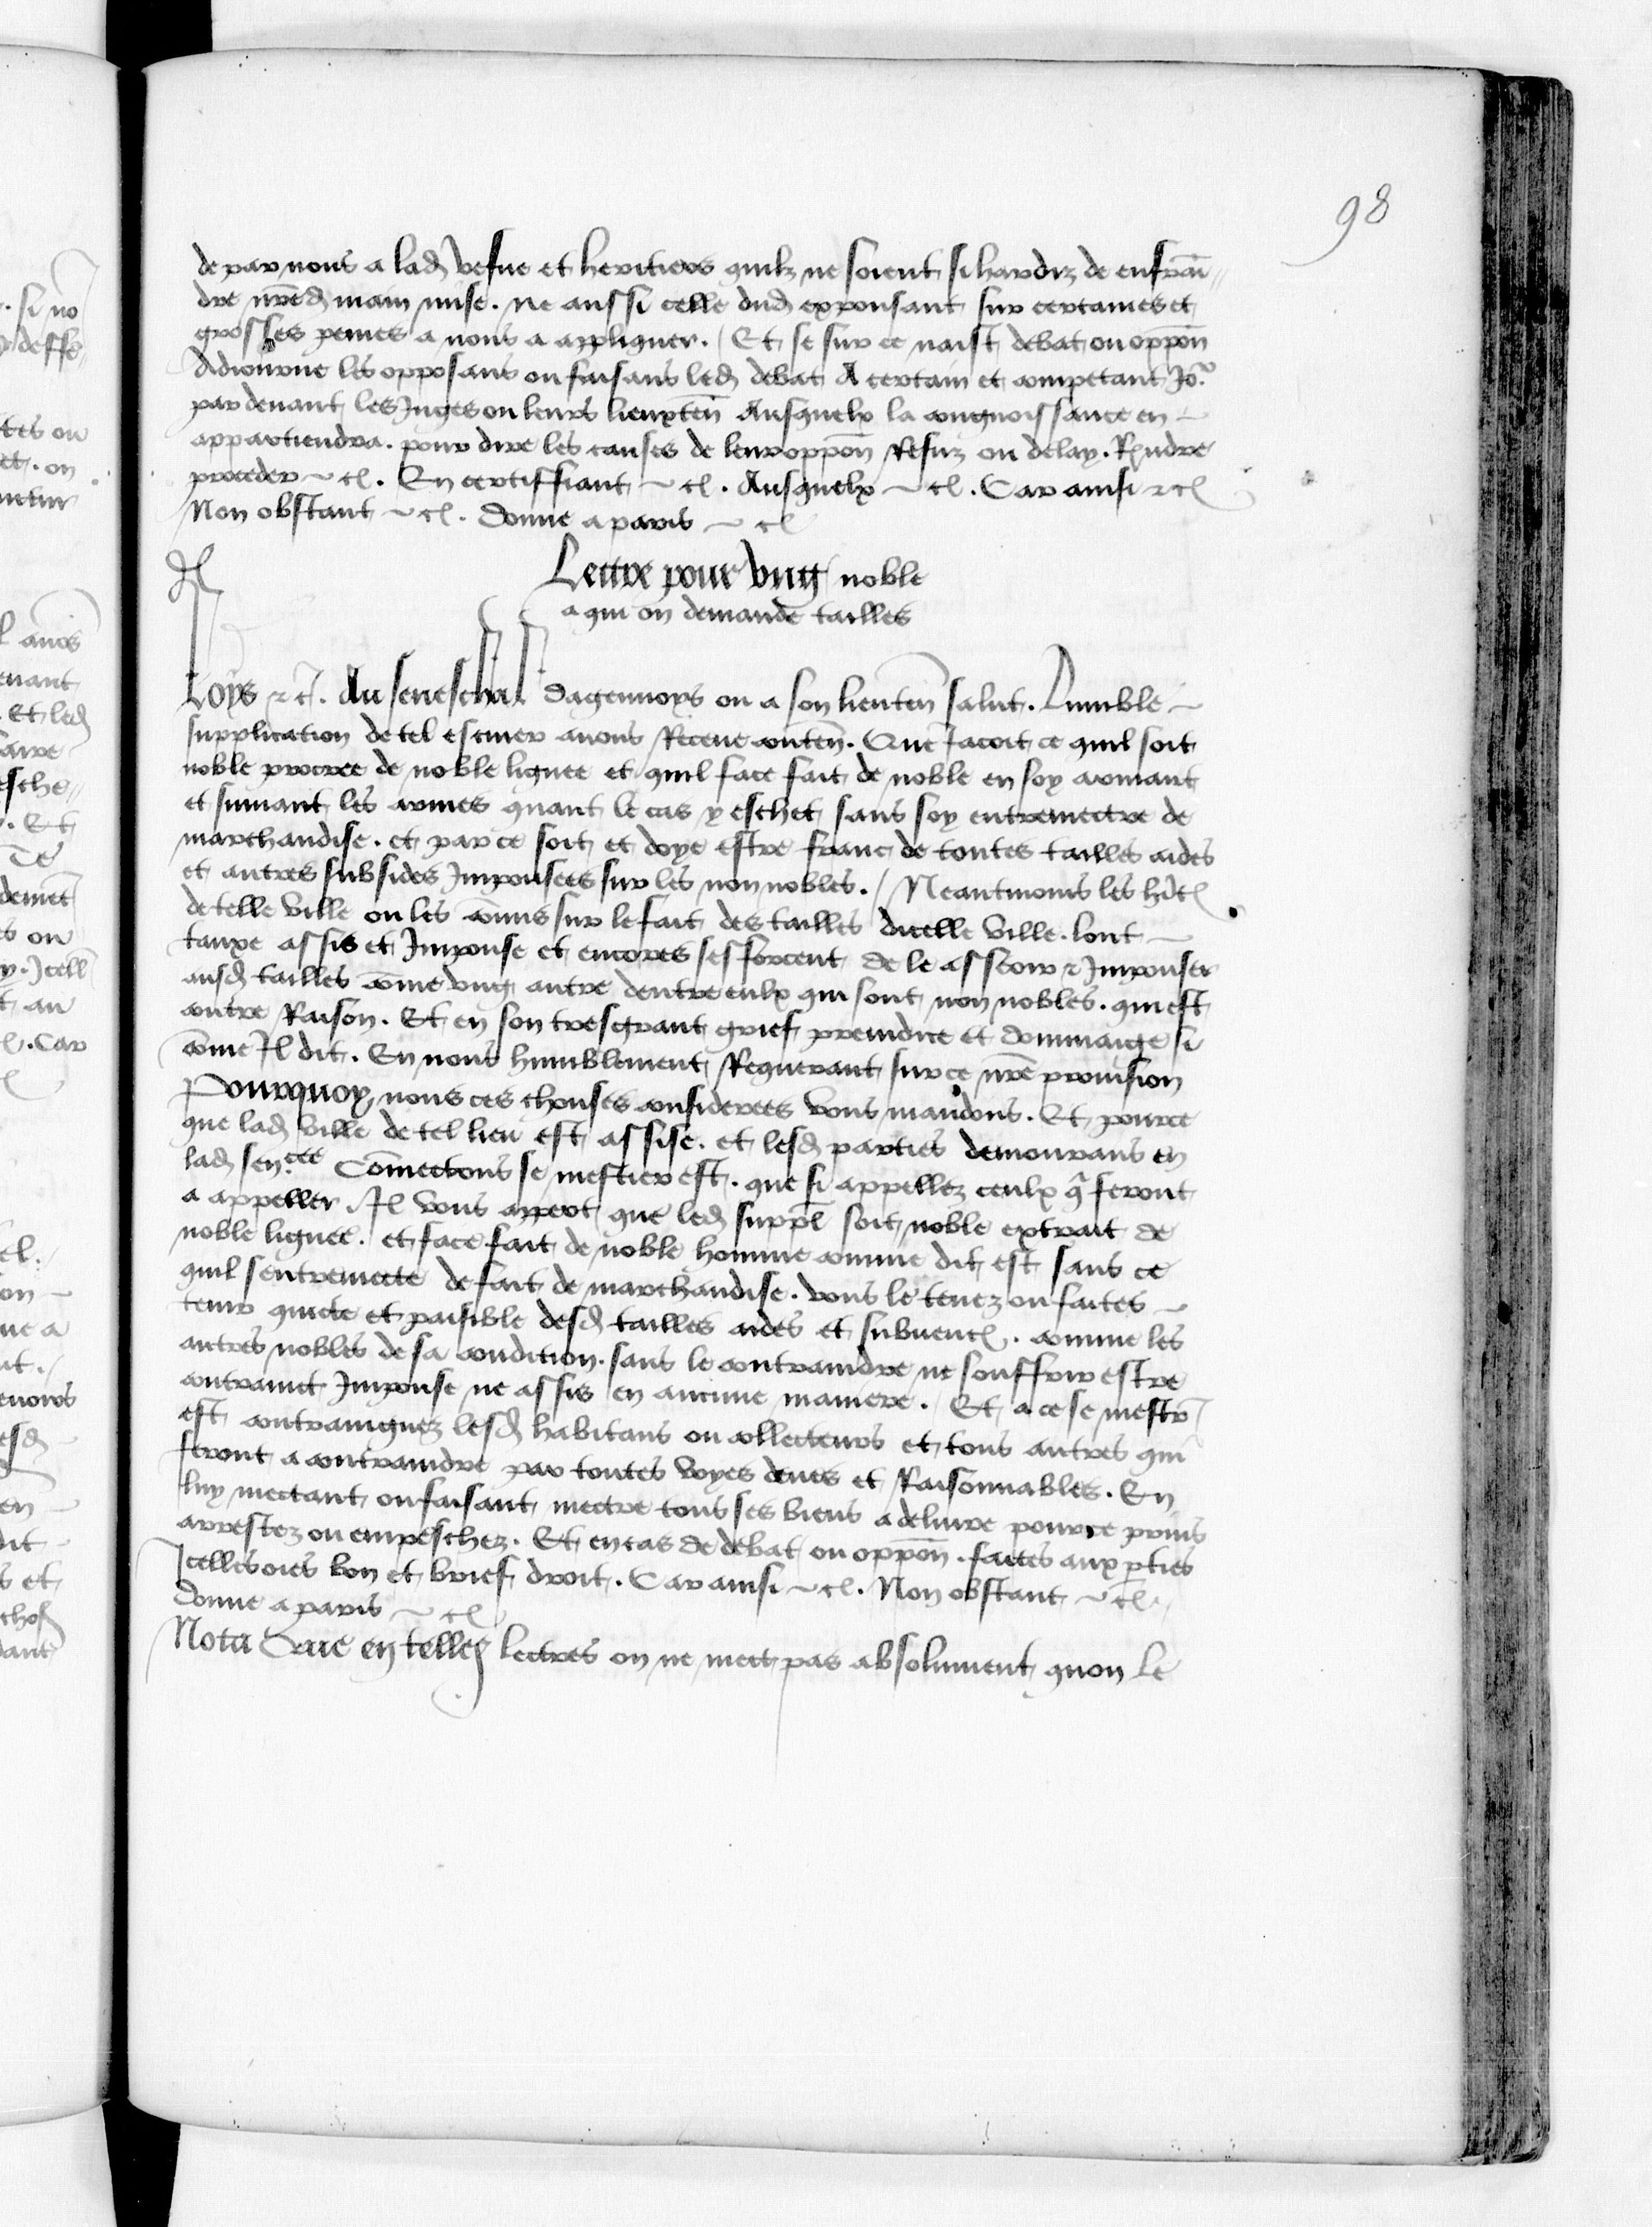 98
de par nous a lad vefue et heritiers quilz ne soient si hardiz de enfrai〃
dre nred main mise. ne aussi celle dud exponsant sur certaines et
grosses peines a nous a appliquer. / Et se sur ce naist debat ou oppon
Adiourne les opposans ou faisans led debat A certain et competant Jor
par deuant les Juges ou leurs lieuxten Ausquelx la congnoissance en
appartiendra. pour dire les causes de leur oppon Refuz ou delay. Rndre
proceder ~ c. En certiffiant ~ c. Ausquelx ~ c. Car ainsi ⁊c
Non obstant ~ c. Donne a paris ~ c
Lettre pour vng noble
a qui on demande tailles
Loys ⁊c. Au seneschal dagennoys ou a son lieuten salut. Lumble
supplication de tel escuier auons Receue conten. Que Jacoit ce quil soit
noble procree de noble lignee et quil face fait de noble en soy armant
et suiuant les armes quant le cas y eschet sans soy entremectre de
marchandise. et par ce soit et doye estre franc de toutes tailles aides
et autres subsides Imposees sur les non nobles. / Neantmoins les hitc
de telle ville ou les comis sur le fait des tailles dicelle ville. lont
tauxe assis et Imponse et encores sesforcent de le asseoir ⁊ Imponser
ausd tailles come vng autre dentre eulx qui sont non nobles. qui est
contre Raison. Et en son tresgrant grief preiudice et dommaige si
come Il dit. En nous humblement Requerant sur ce nre prouision
Pourquoy nous ces chouses considerees vous mandons. Et pource
que lad ville de tel lieu est assise. et lesd parties demourans en
lad sencee Comectons se mestier est. que si appellez ceulx q feront
a appeller. Il vous appert que led suppl soit noble extrait de
noble lignee. et face fait de noble homme comme dit est sans ce
quil sentremecte de fait de marchandise. vous le tenez ou faites
tenir quicte et paisible desd tailles aides et subuenc. comme les
autres nobles de sa condition. sans le contraindre ne souffrir estre
contraint Imponse ne assis en aucune maniere. / Et a ce se mestr
est contraignez lesd habitans ou collecteurs et tous autres qui
feront a contraindre par toutes voyes deues et Raisonnables. En
luy mectant ou faisant mectre tous ses biens a deliure pource prins
arrestez ou empeschez. Et en cas de debat ou oppon. faites aux pties
Icelles oies bon et brief droit. Car ainsi ~ c. Non obstant ~ c.
Donne a paris ~ c
Nota Que en telles lectres on ne mect pas absolument quon le